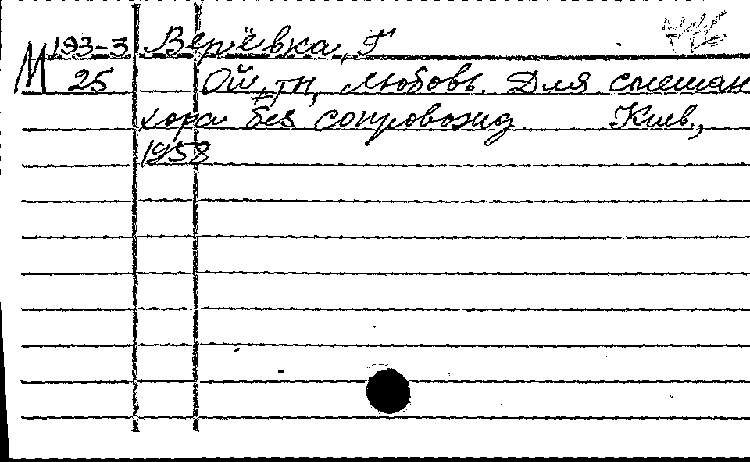 М 193-3 Верёвка, Г
25 Ой, ти, любовь. Для смешан
хора без сопровожд. Киев.,
1958